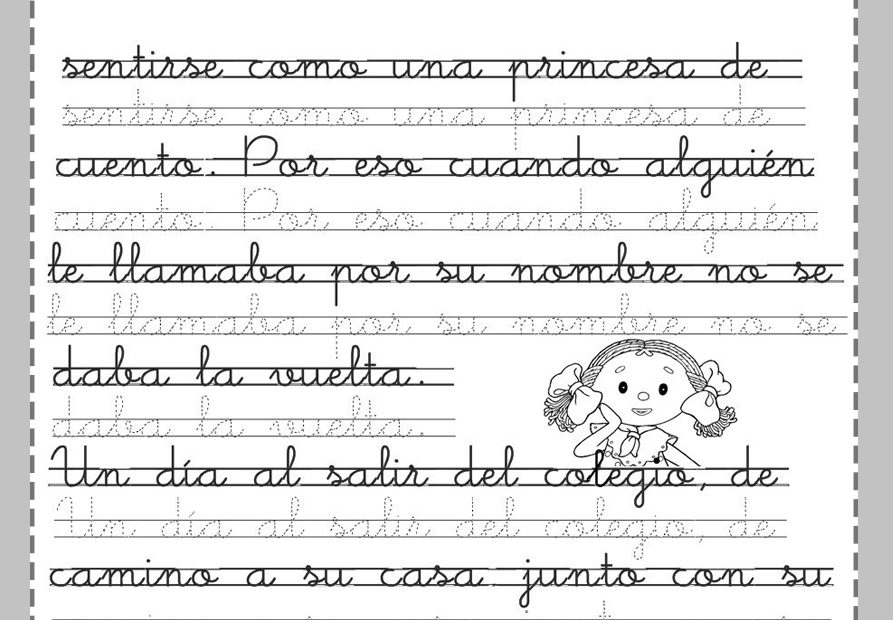 sentirse como una princesa de
sentirse como una princesa de
cuento. Por eso cuando alguién
cuento. Por eso cuando alguién
le llamaba por su nombre no se
le llamaba por su nombre no se
daba la vuelta.
daba la vuelta.
Un día al salir del colegio, de
Un día al salir del colegio, de
camino a su casa junto con su